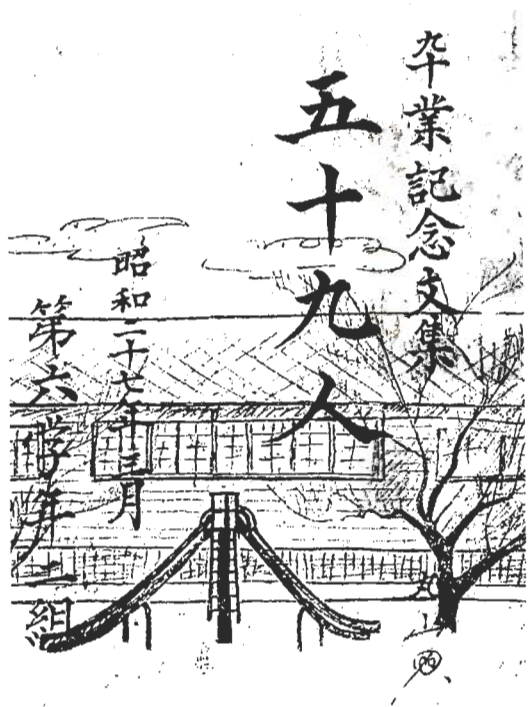 卆業記念文集
五十九人
昭和二十七年三月
第六学年二組